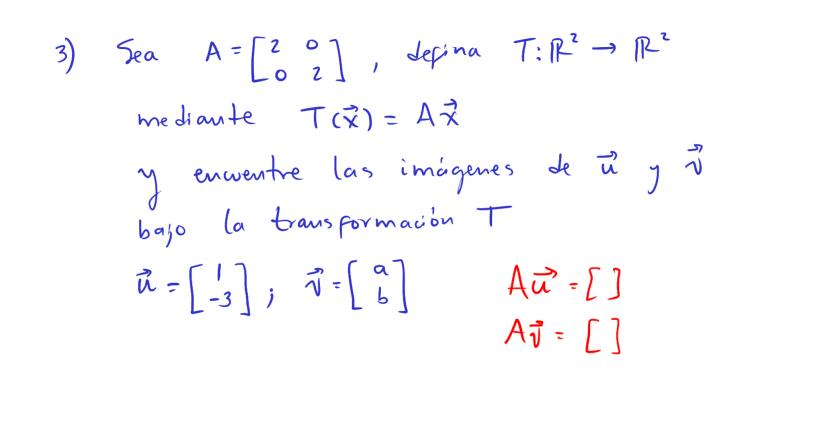 3) Sea A = [2 0; 0 2], defina T: ℝ² → ℝ²
mediante T(x⃗) = Ax⃗
y encuentre las imágenes de u⃗ y v⃗
bajo la transformación T
u⃗ = [1; -3]; v⃗ = [a; b]
Au⃗ = [ ]
Av⃗ = [ ]